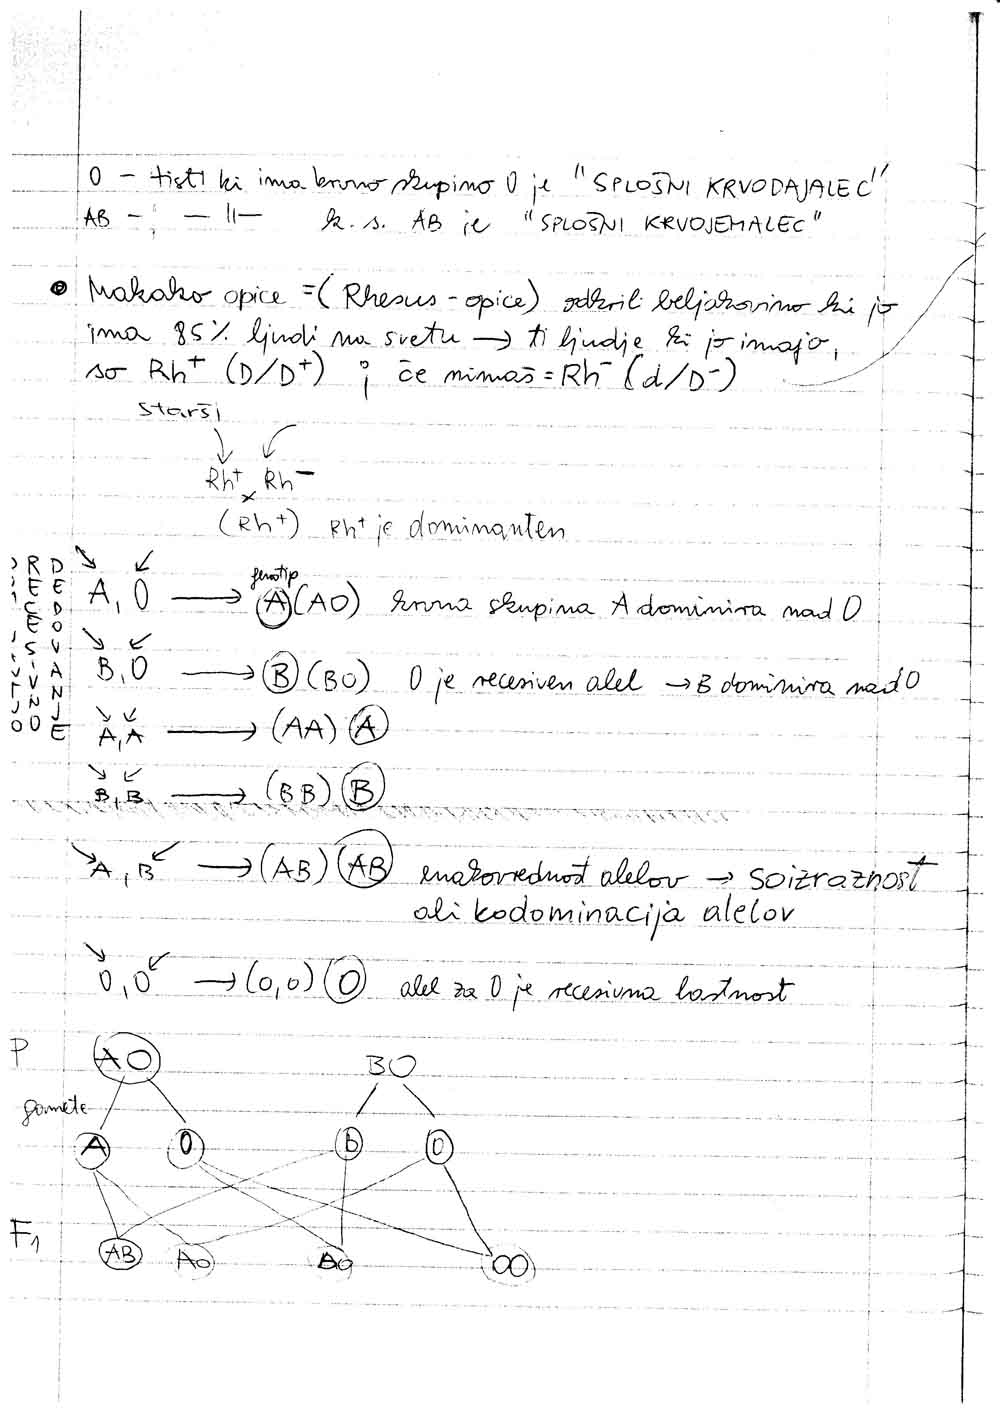 0 - tisti ki ima krvno skupino 0 je "SPLOŠNI KRVODAJALEC"
AB - ; - 11 - k. s. AB je "SPLOŠNI KRVOJEMALEC"
Makako opice = (Rhesus - opice) odkrili beljakovino ki jo
ima 85% ljudi na svetu → ti ljudje ki jo imajo,
so Rh+ (D/D+) ; če nimaš = Rh- (d/D-)
starši
Rh+ x Rh-
(Rh+) Rh+ je dominanten
RECESIVNO
DEDOVANJE
genotip
A, 0 → A (AO) krvna skupina A dominira nad 0
B, 0 → B (BO) 0 je recesiven alel → B dominira nad 0
A, A → (AA) A
B, B → (BB) B
A, B → (AB) AB enakovrednost alelov → soizraznost
ali kodominacija alelov
0, 0 → (0,0) 0 alel za 0 je recesivna lastnost
P AO BO
gamete
A 0 b 0
F1 AB Ao Bo OO